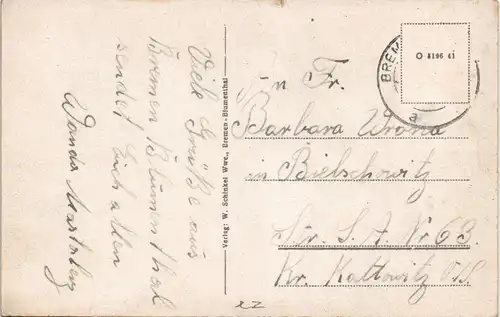 Viele Grüße aus
Bremen Blumenthal
sendet Euch allen
Wanda
Verlag: W. Schinkel Wwe., Bremen-Blumenthal
BREM
a
O 8196 41
An Fr.
Barbara Wrona
in Bielschowitz
Str. S. A. Nr 63.
Kr. Kattowitz O/S.